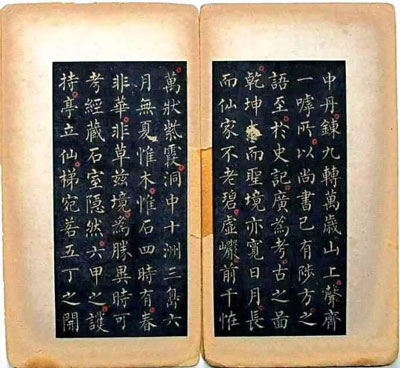 中丹鍊九轉萬歲山上聲齊
一嘑所以尚書已有陟方之
語至於史記廣為考古之啚
乾坤而聖境亦寬日月長
而仙家不老碧虛巖前千惟
萬狀紫霞洞中十洲三島六
月無夏惟木惟石四時有春
非華非草茲境為勝異時可
考經藏石室隱然六甲之護
持亭立仙梯宛若五丁之開